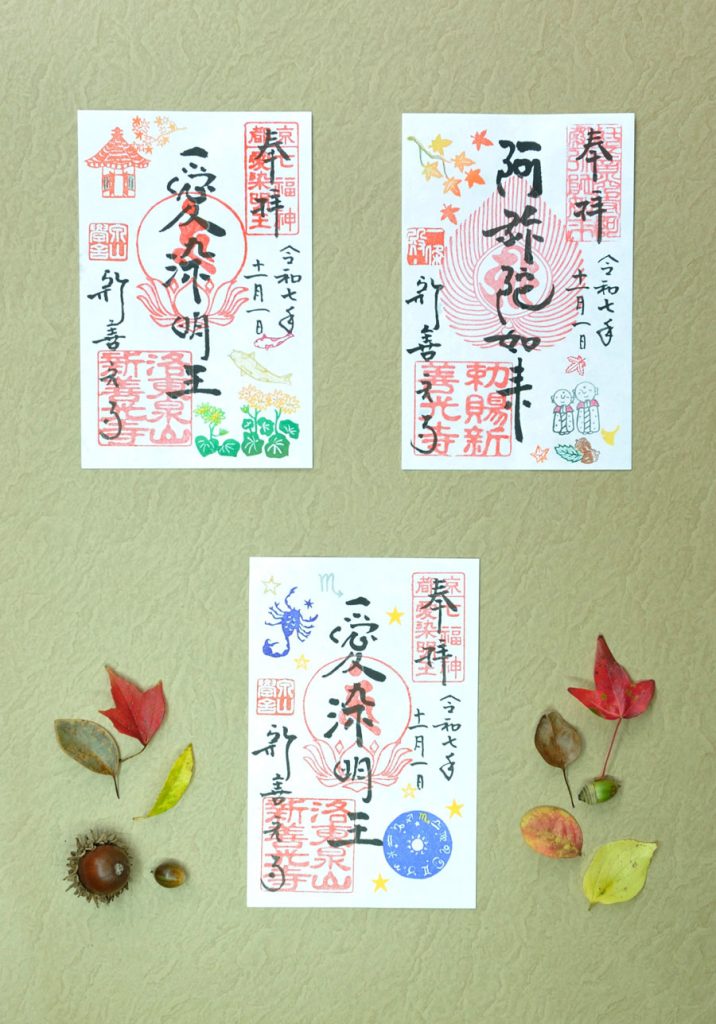 奉拝
京七福神
都愛染明王
令和七年
十一月一日
愛染明王
新善光寺
洛東泉山
新善光寺
奉拝
令和七年
十一月一日
阿弥陀如来
新善光寺
勅賜新
善光寺
奉拝
京七福神
都愛染明王
令和七年
十一月一日
愛染明王
新善光寺
洛東泉山
新善光寺